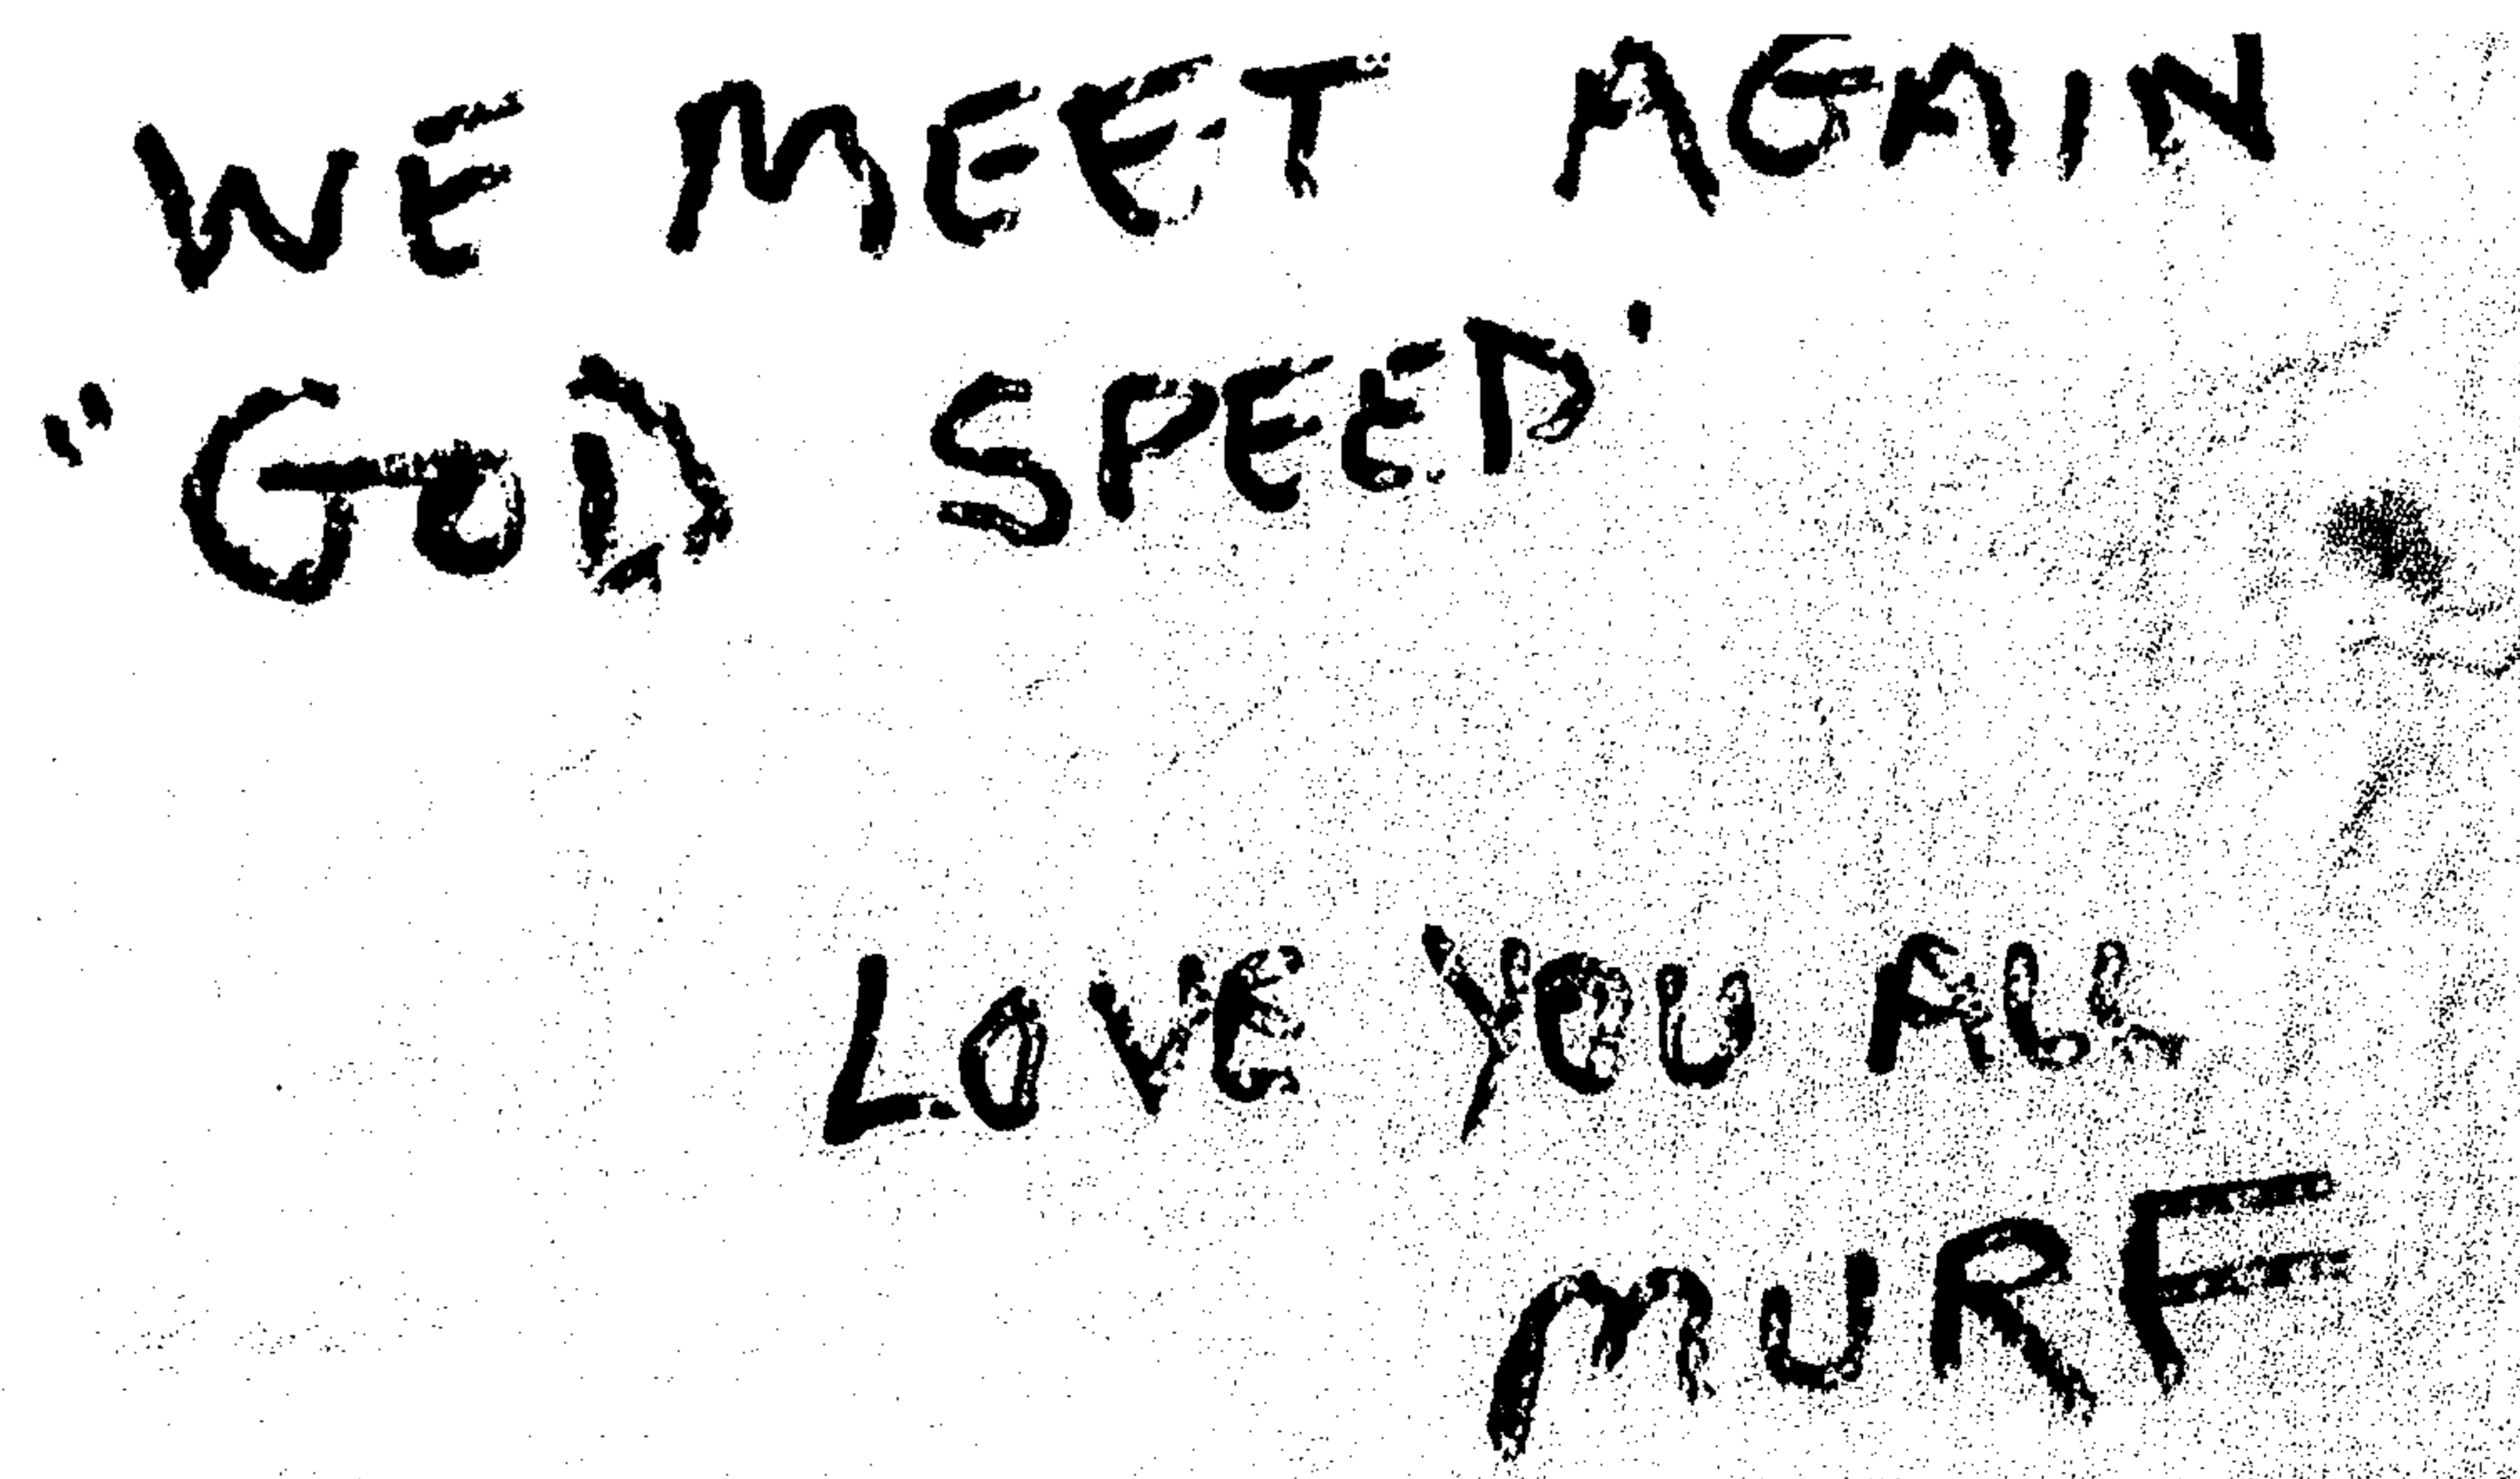 WE MEET AGAIN
"GOD SPEED'
LOVE YOU ALL
MURF